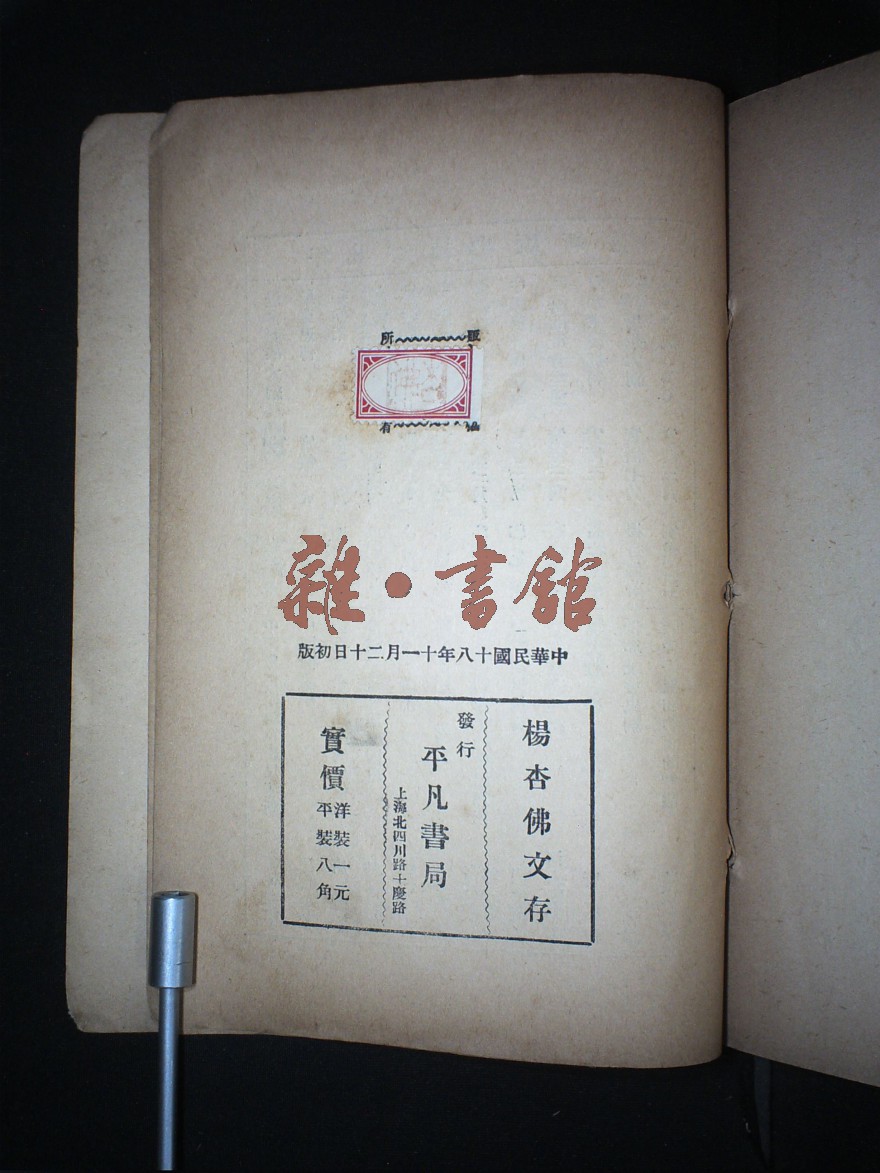 版權
所有
雜·書館
中華民國十八年十一月二十日初版
楊杏佛文存
發行
平凡書局
上海北四川路十慶路
實價
洋裝一元
平裝八角